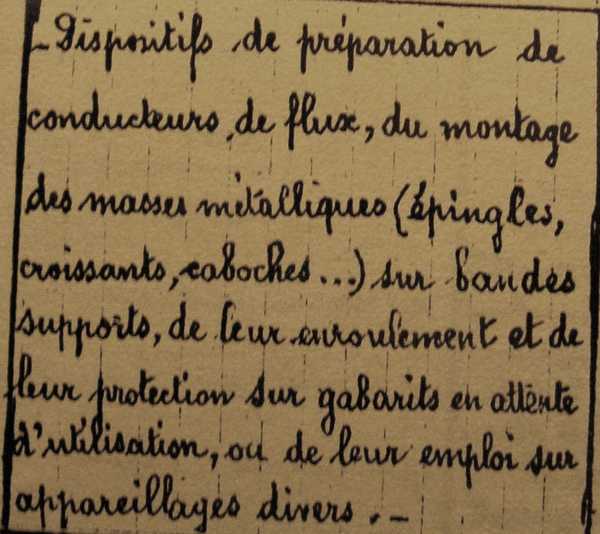 - Dispositifs de préparation de
conducteurs, de flux, du montage
des masses métalliques (épingles,
croissants, caboches...) sur bandes
supports, de leur enroulement et de
leur protection sur gabarits en attente
d'utilisation, ou de leur emploi sur
appareillages divers. -